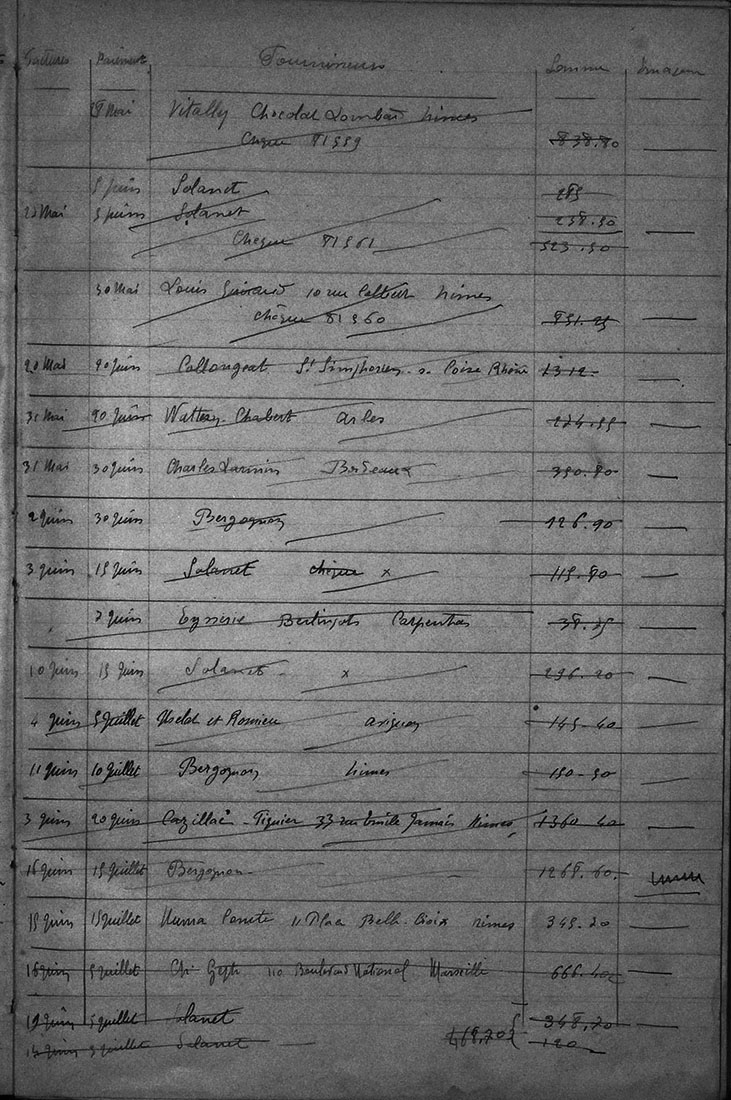 Factures Paiement Fournisseurs Somme
28 Mai Vitally Chocolat Lombard Nimes 838.80
Chèque 81559
5 Juin Solanet 285
22 Mai 5 Juin Solanet 238.50
Cheque 81561 523.50
30 Mai Louis 10 rue Nimes 851.25
Chèque 81560
20 Mai 20 Juin Collongeat St Simphorien s. Coise Rhône 1312
31 Mai 20 Juin Chabert Arles 224.55
31 Mai 30 Juin Charles Bordeaux 350.80
2 Juin 30 Juin Bergognon 126.90
3 Juin 15 Juin Solanet chèque x 115.80
2 Juin Eysseric Berlingots Carpentras 38.25
10 Juin 15 Juin Solanet x 296.20
4 Juin 5 Juillet et Romieu Avignon 145-40
11 Juin 10 Juillet Bergognon Nimes 150-50
3 Juin 20 Juin Cazillac - Tiguier 33 rue Emile Jamais Nimes 1360 40
16 Juin 15 Juillet Bergognon 1268.60
15 Juin 15 Juillet Numa 11 Place Belle-Croix Nimes 345.20
16 Juin 5 Juillet Ch. 110 Boulevard National Marseille 666.40
19 Juin 5 Juillet 348,70
5 Juillet Solanet 468,70 120